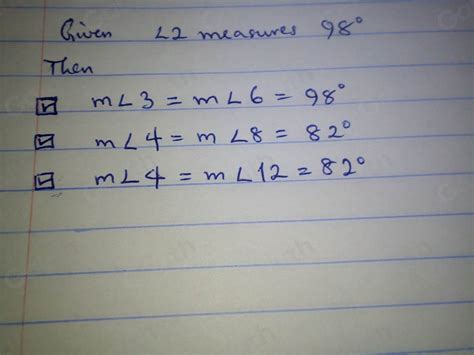 Given ∠2 measures 98°
Then
☑ m∠3 = m∠6 = 98°
☑ m∠4 = m∠8 = 82°
☑ m∠4 = m∠12 = 82°